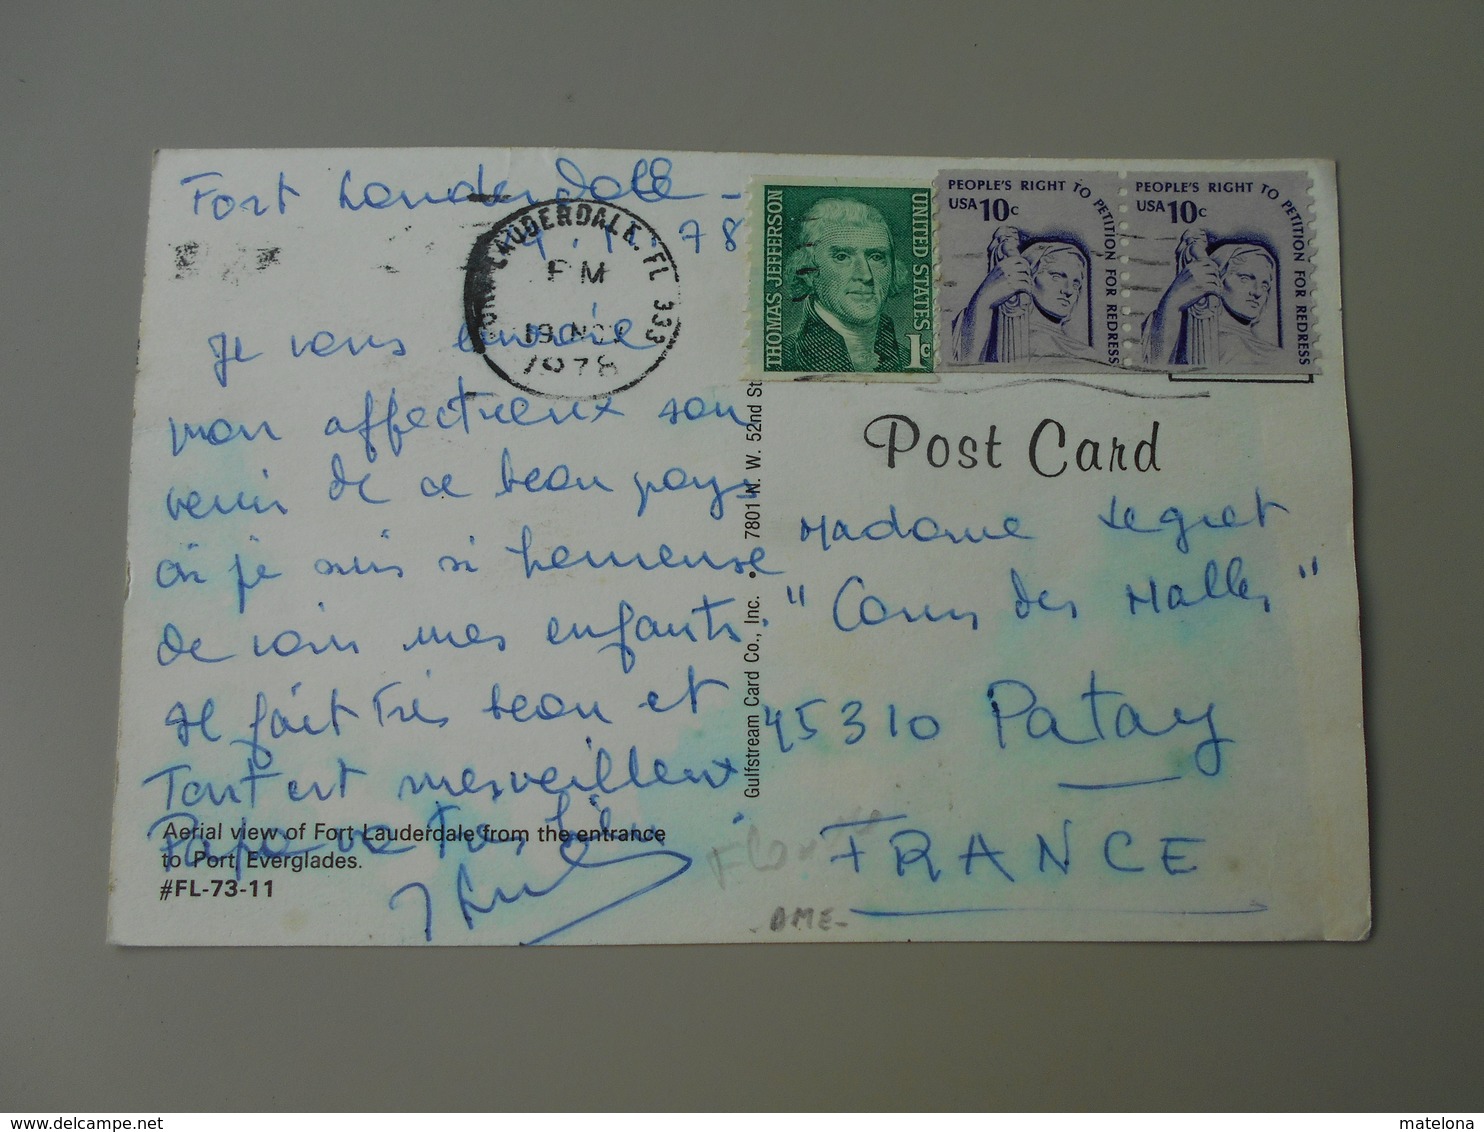 Fort Lauderdale -
78
Je vous envoie
mon affectueux sou
venir de ce beau pays
où je suis si heureuse
de voir mes enfants.
Il fait très beau et
Tout est merveilleux
Papa va Très bien
Aerial view of Fort Lauderdale from the entrance
to Port Everglades.
#FL-73-11
LAUDERDALE, FL 333
PM
19 NOV
1978
Gulfstream Card Co., Inc. • 7801 N. W. 52nd St
THOMAS JEFFERSON
UNITED STATES
1c
PEOPLE'S RIGHT TO PETITION FOR REDRESS
USA 10c
PEOPLE'S RIGHT TO PETITION FOR REDRESS
USA 10c
Post Card
Madame Legret
"Cours des Halles"
45310 Patay
FRANCE
DME-
matelona